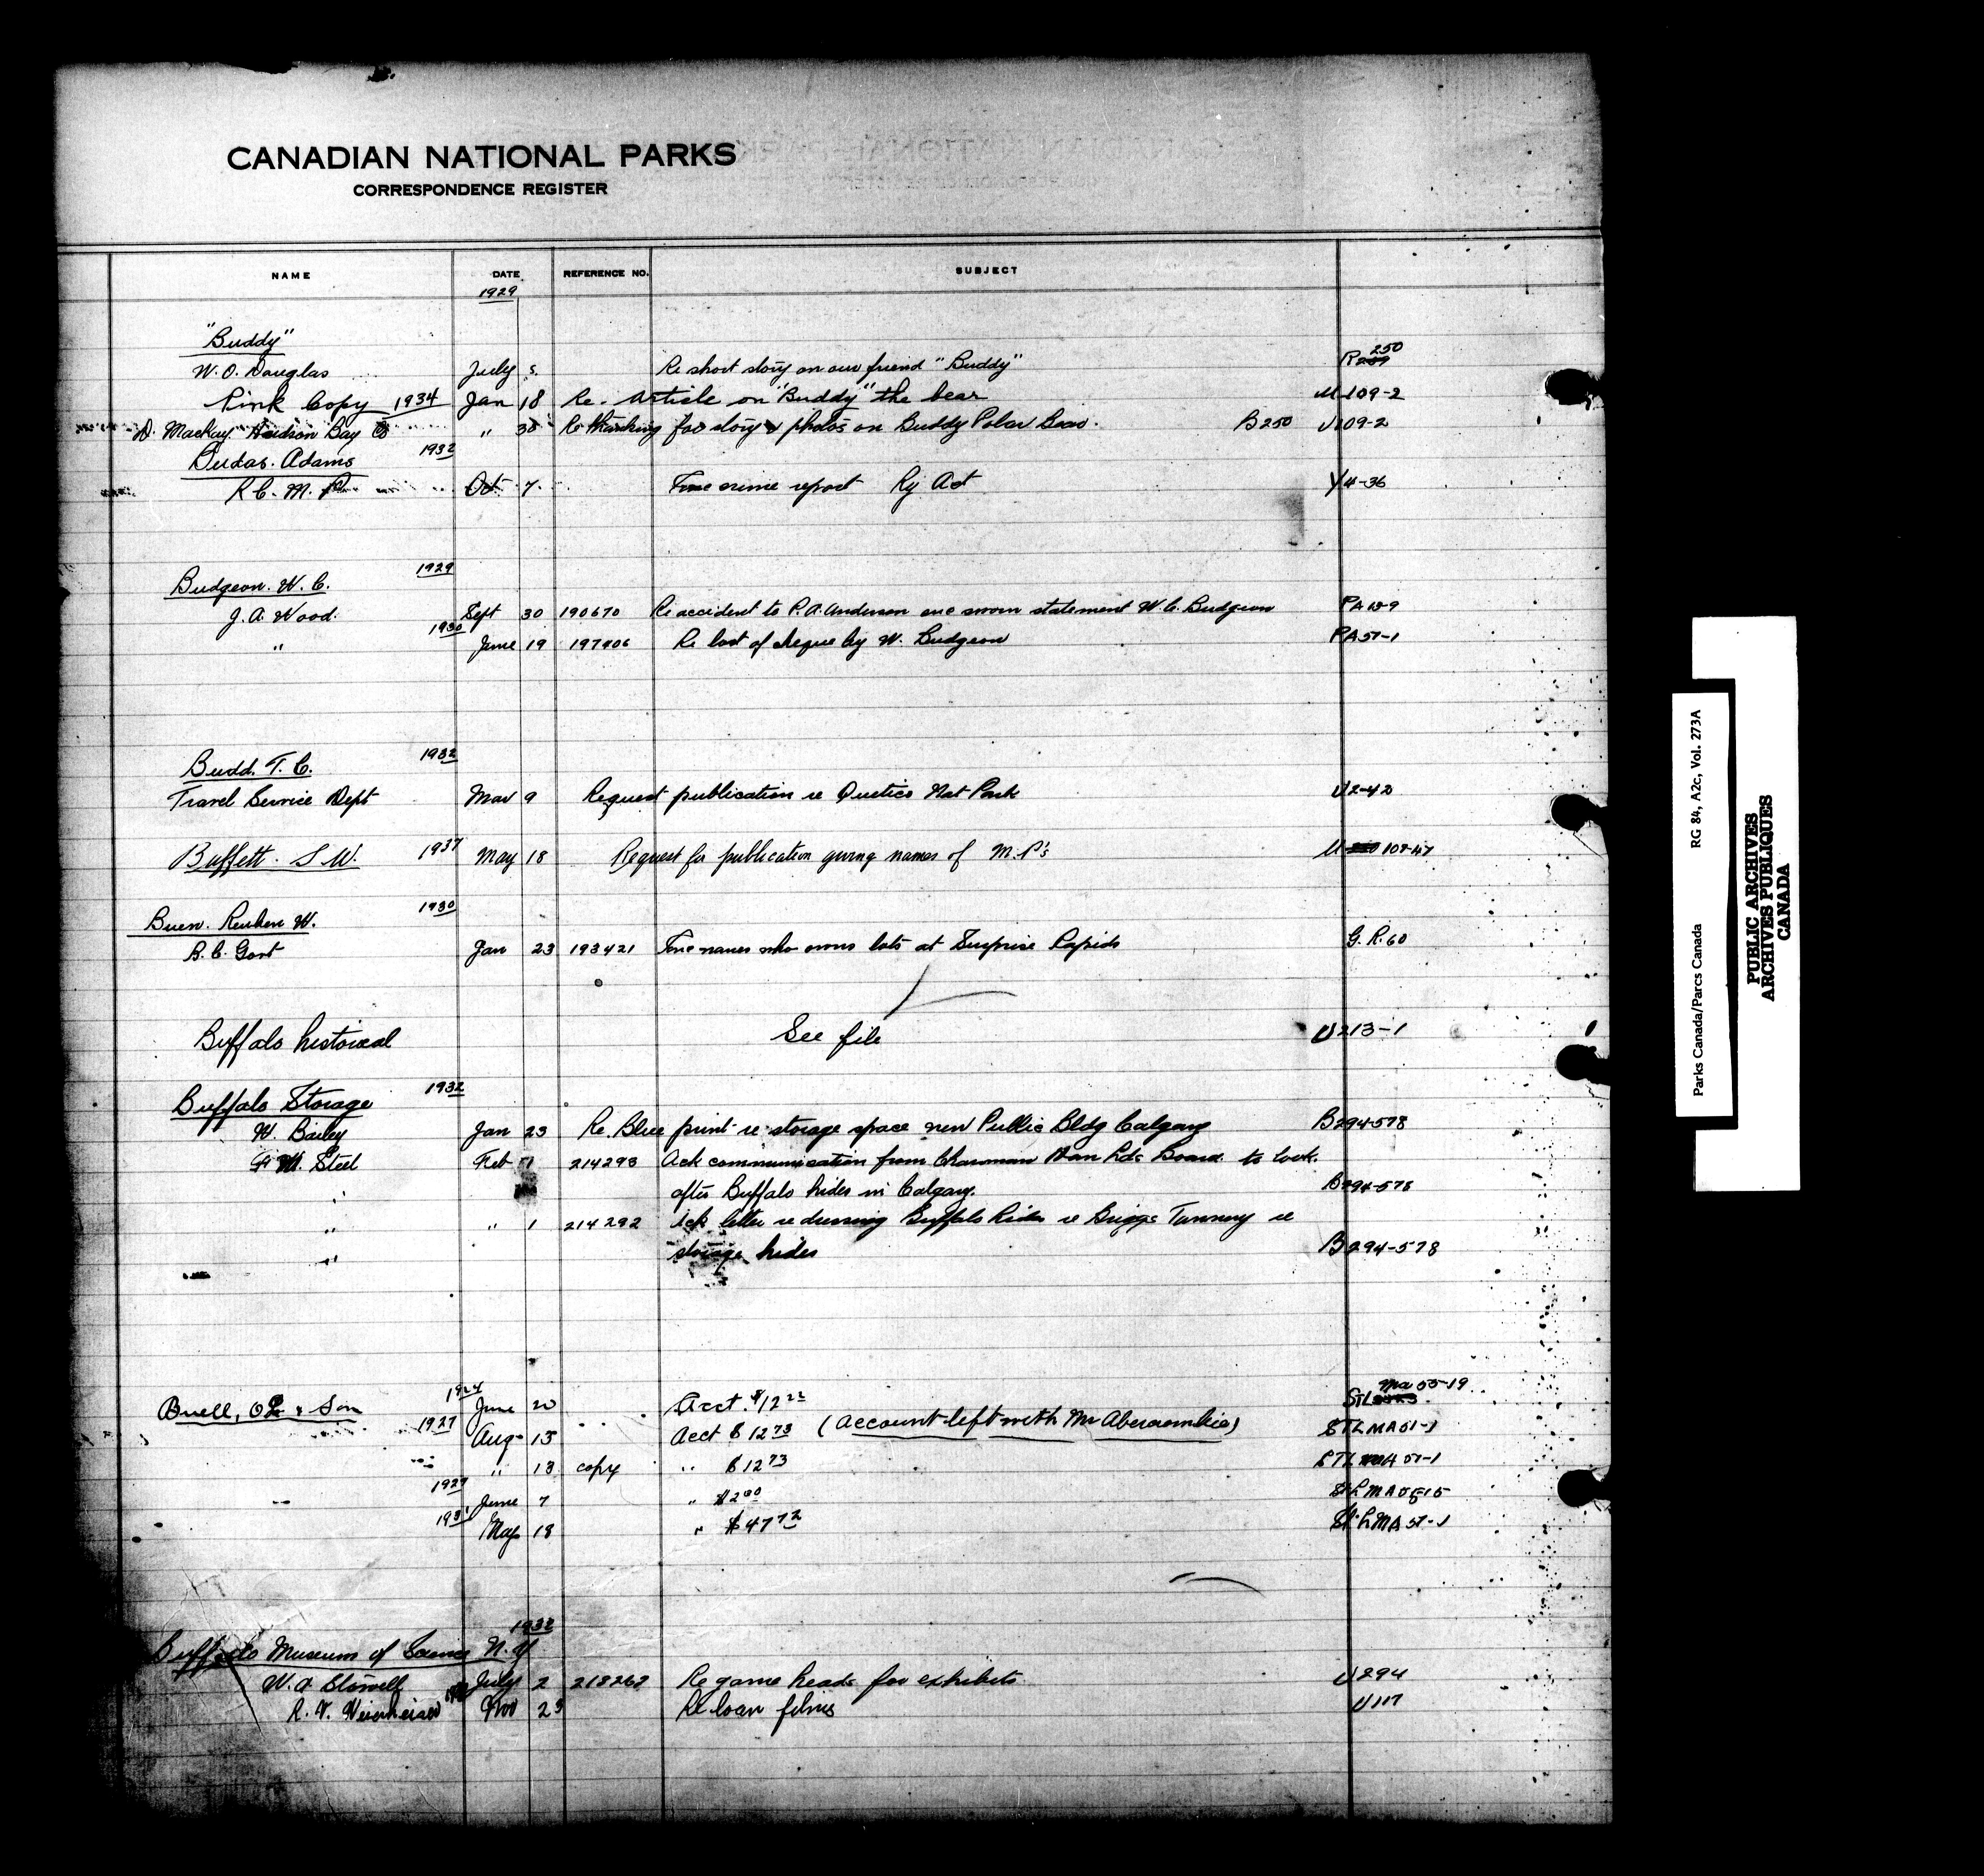 CANADIAN NATIONAL PARKS
CORRESPONDENCE REGISTER
NAME DATE REFERENCE NO. SUBJECT
1929
"Buddy"
W. O. Douglas July 5 Re short story on our friend "Buddy" 250
Pink Copy 1934 Jan 18 Re. Article on "Buddy" the bear 109-2
D. Mackay Hudson Bay Co " 30 Re thanking for story & photos on Buddy Polar Bear. B250 U109-2
Budas. Adams 1932
R. C. M. P. Oct 7 crime report Ry Act Y4-36
Budgeon. W. C. 1929
J. A. Wood. Sept 30 190670 Re accident to P. A. Anderson enc sworn statement W. C. Budgeon
" 1930 June 19 197406 Re lost of cheque by W. Budgeon PA51-1
Budd. T. C. 1932
Travel Service Dept Mar 9 Request publication re Quetico Nat Park U2-42
Buffett. S. W. 1937 May 18 Request for publication giving names of M.P's 109-47
Buen. Reuben W. 1930
B. C. Govt Jan 23 193421 names who owns lots at Surprise Rapids G. R. 60
Buffalo historical See file U213-1
Buffalo Storage 1932
W. Bailey Jan 23 Re. Blue print re storage space new Public Bldg Calgary B294-578
F. M. Steel Feb 1 214293 Ack communication from Chairman Board to look
" after Buffalo hides in Calgary. B294-578
" " 1 214292 Ack letter re dressing Buffalo hides re Briggs Tannery re
" storage hides B294-578
Buell, O. L. & Son 1924 June 20 Acct. $12 22 Ma 55-19
STL
1927 Aug 13 Acct $12 73 (Account left with Mr Abercrombie) STLMA51-1
" 13 copy " $12 73 STLMA 51-1
1927 June 7 " $2 00
1931 May 18 " $47 72 St. L MA 51-1
1932
Buffalo Museum of Science N. Y
W. A. Stowell July 2 218262 Re game heads for exhibits U294
R. V. Nov 23 Re loan films U117
Parks Canada/Parcs Canada RG 84, A2c, Vol. 273A
PUBLIC ARCHIVES
ARCHIVES PUBLIQUES
CANADA